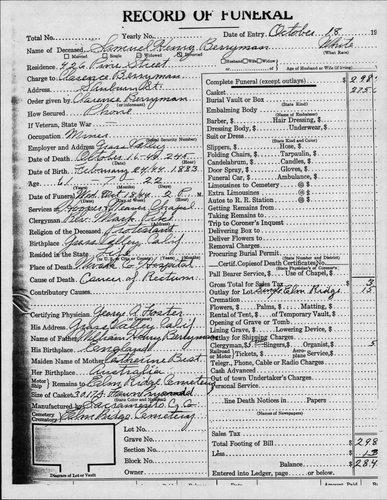 RECORD OF FUNERAL
Total No. Yearly No. Date of Entry October 18 19
Name of Deceased Samuel Henry Berryman White
Married Single Widowed Divorced (What Race)
Residence 426 Pine Street Husband/Wife of
Charge to Clarence Berryman Age of Husband or Wife (if living)
Address
Order given by Clarence Berryman
How Secured Phone
If Veteran, State War
Occupation Miner
(Social Security Number)
Employer and Address Grass Valley
Date of Death October 16
Date of Birth February 24 1883
Age 61 7 22
Services at Chapel
Clergyman Rev. Mark
Religion of the Deceased Protestant
Birthplace Grass Valley Calif
Resided in the State Life
Place of Death Hospital
Cause of Death Cancer of Rectum
Contributory Causes
Certifying Physician George A. Foster
His Address Grass Valley Calif
Name of Father William Henry Berryman
His Birthplace England
Maiden Name of Mother Catherine Best
Her Birthplace Australia
Motor Ship Remains to Elm Ridge Cemetery
Size of Casket
(State Color and Number)
Manufactured by Sacramento C. Co
Cemetery Crematory Elm Ridge Cemetery
Lot No.
Grave No.
Section No.
Block No.
Owner
Diagram of Lot or Vault
Complete Funeral (except outlays) $ 298
Casket
Burial Vault or Box
(State Kind)
Embalming Body
(Name of Embalmer)
Barber, $ Hair Dressing, $
Dressing Body, $ Underwear, $
Suit or Dress
(State Kind and Color)
Slippers, $ Hose, $
Folding Chairs, $ Tarpaulin, $
Candelabrum, $ Candles, $
Door Spray, $ Gloves, $
Funeral Car, $ Ambulance, $
Limousines to Cemetery @ $
Extra Limousines @ $
Autos to R. R. Station @ $
Getting Remains from
Taking Remains to
Trip to Coroner's Inquest
Delivering Box to
Deliver Flowers to
Removal Charges
Procuring Burial Permit
Certif. Copies of Death Certificates No.
(State Physician's or Coroner's)
Pall Bearer Service, $ Use of Chapel, $
Gross Total for Sales Tax $
Outlay for Lot Elm Ridge 15
Cremation
Flowers, $ Palms, $ Matting, $
Rental of Tent, $ of Temporary Vault, $
Opening of Grave or Tomb
Lining Grave, $ Lowering Device, $
Outlay for Shipping Charges
Clergyman, $ Singers, $ Organist, $ 5
Railroad Motor Tickets, $ place Service, $
Telegr., Phone, Cable or Radio Charges
Cash Advanced
Out of town Undertaker's Charges
Personal Service
line Death Notices in Papers
Sales Tax
Total Footing of Bill $ 298
Less $
Balance $ 284
Entered into Ledger, page or below